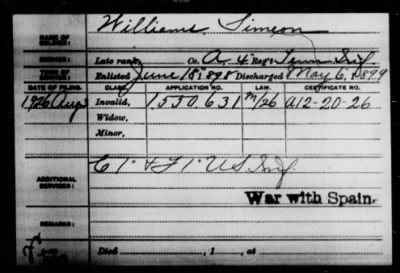 NAME OF SOLDIER: Williams, Simeon
SERVICE: Late rank, Co. A, 4" Reg't Tenn Inf.
TERM OF SERVICE: Enlisted June 18", 1898 Discharged May 6, 1899
DATE OF FILING. CLASS. APPLICATION NO. LAW. CERTIFICATE NO.
1926 Aug 3 Invalid, 1550,631 M/26 A12-20-26
Widow,
Minor,
ADDITIONAL SERVICES: C 1" & F 1" US Inf
War with Spain.
REMARKS:
Died , 1 , at